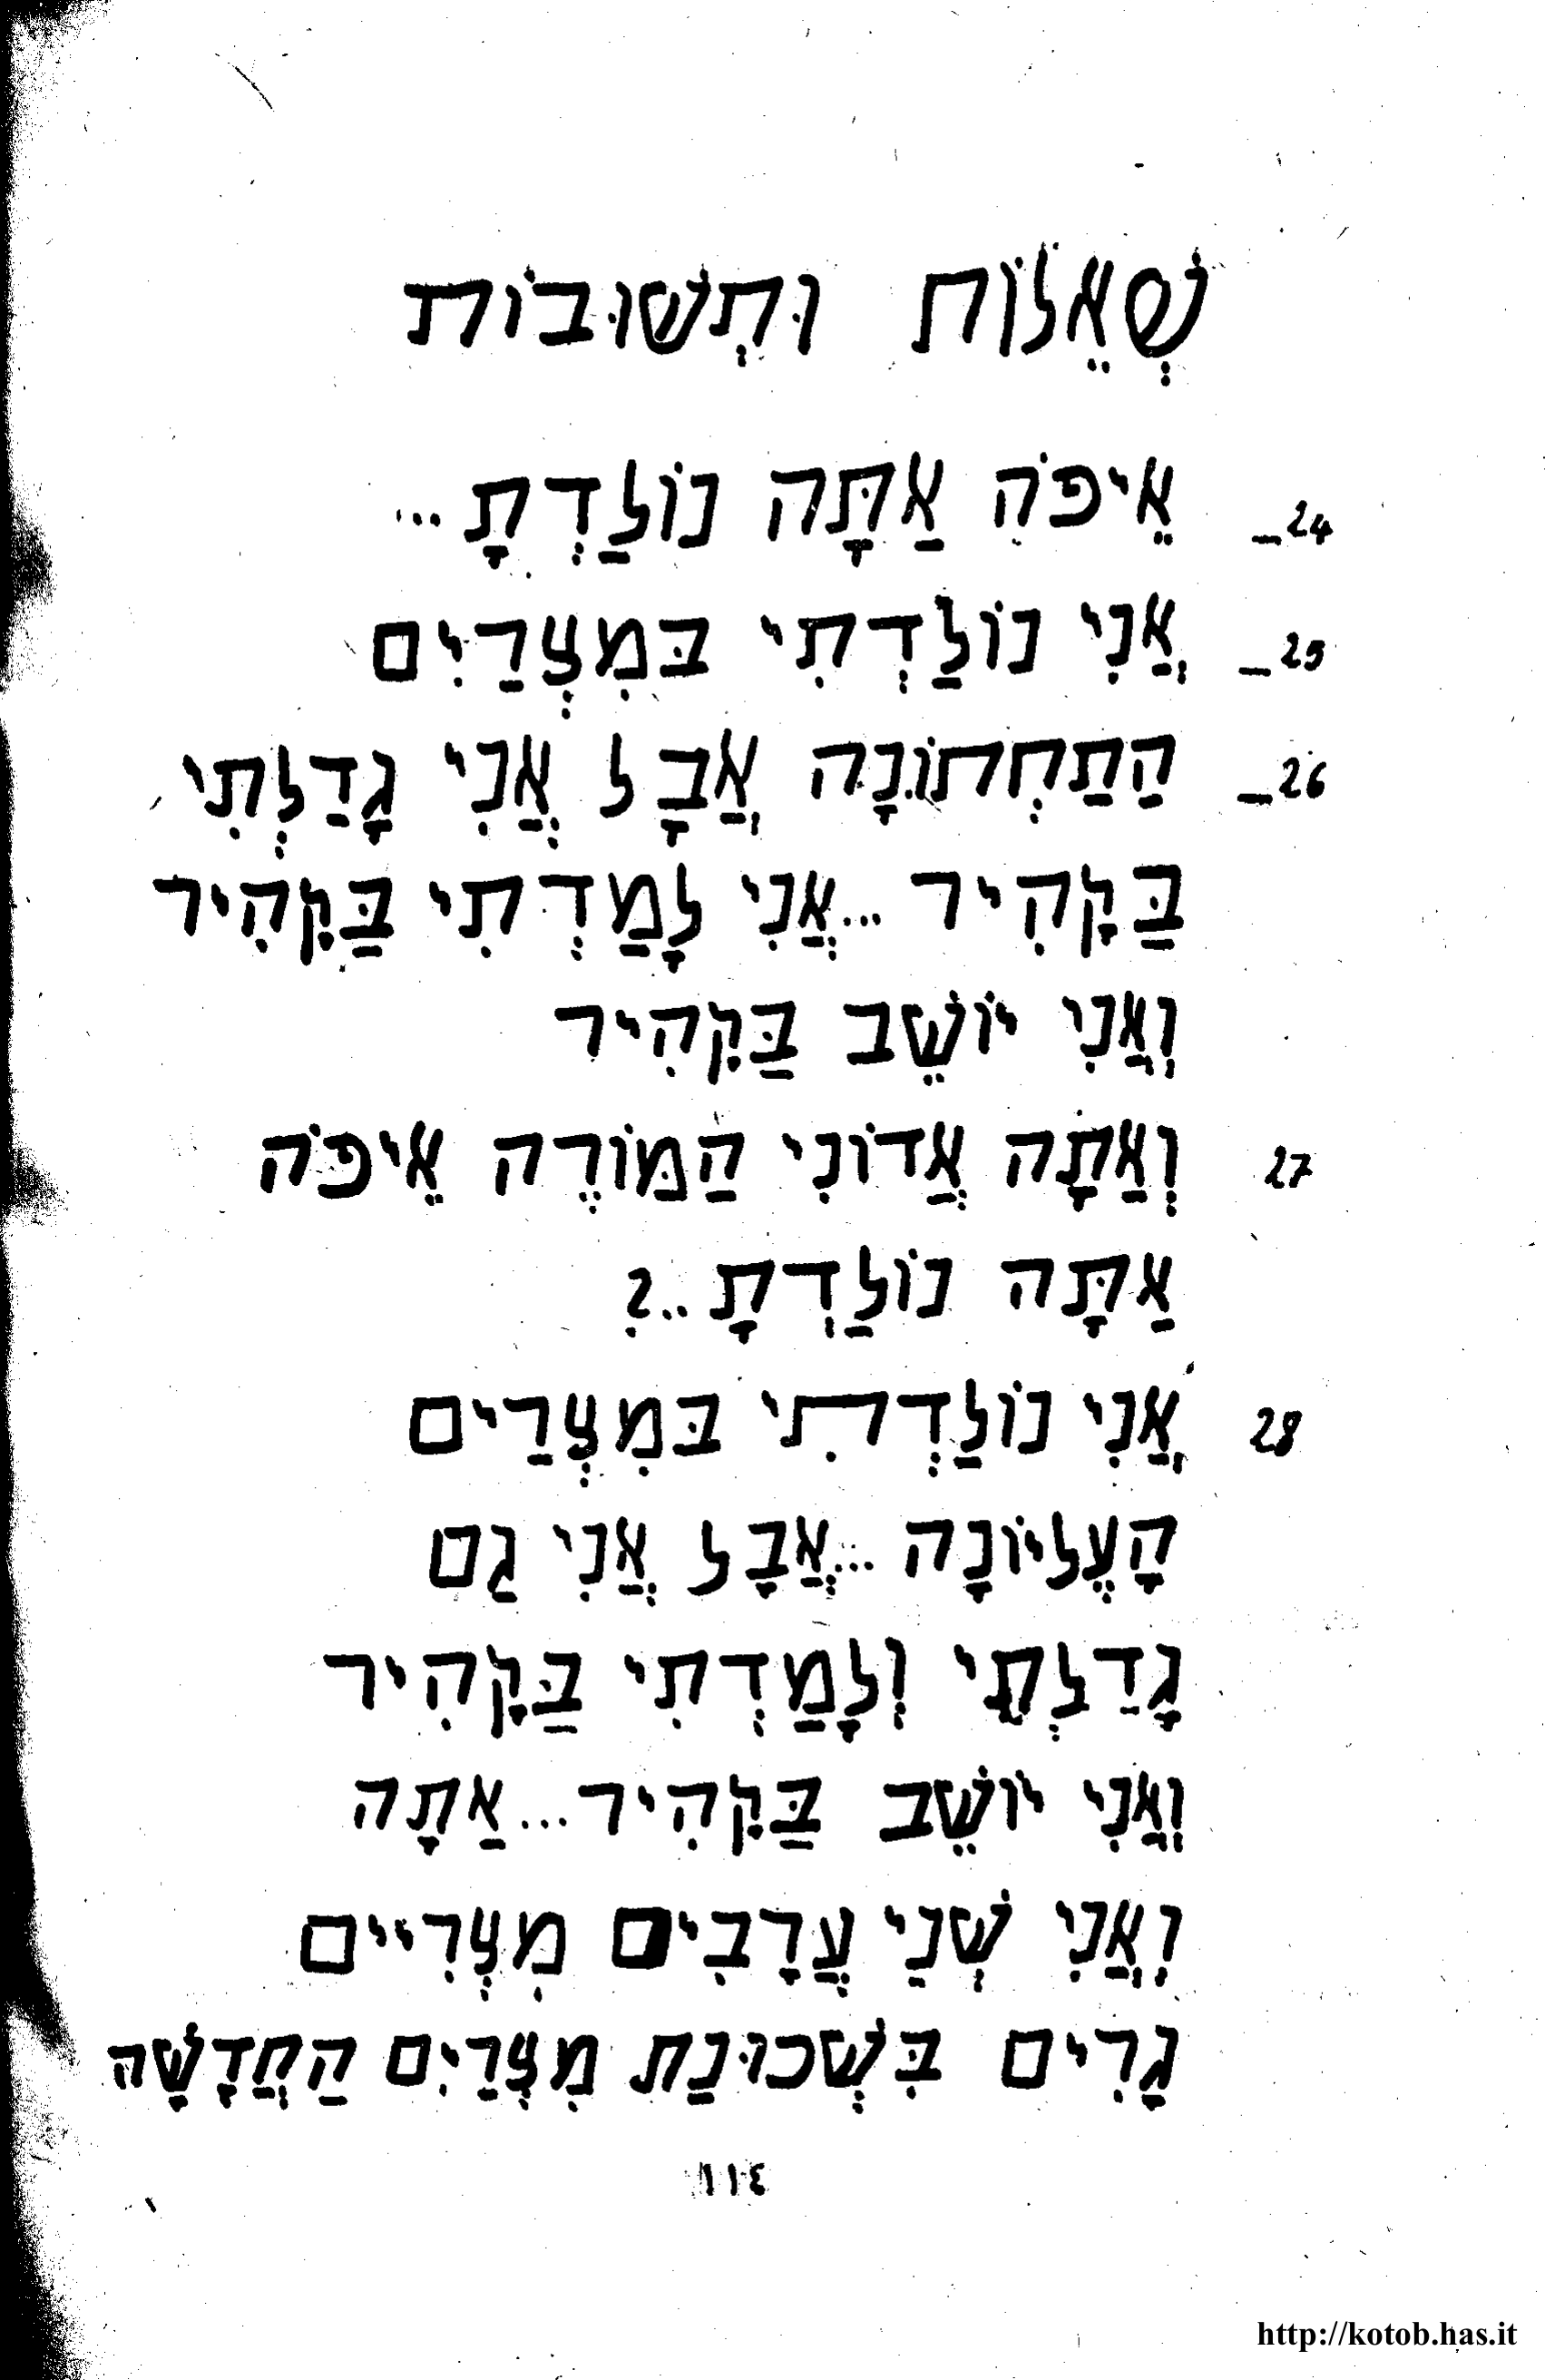 שְׁאֵלוֹת וּתְשׁוּבוֹת
24_ אֵיפֹה אַתָּה נוֹלַדְתָ...
25_ אֲנִי נוֹלַדְתִי בְּמִצְרַיִם
26_ הַתַחְתוֹנָה אֲבָל אֲנִי גָדַלְתִי
בַּקָהִיר ...אֲנִי לָמַדְתִי בַּקָהִיר
וְאֲנִי יוֹשֵׁב בַּקָהִיר
27 וְאַתָה אֲדוֹנִי הַמּוֹרֶה אֵיפֹה
אַתָּה נוֹלַדְתָ..?
28 אֲנִי נוֹלַדְתִי בְּמִצְרַיִם
הָעֶלְיוֹנָה ...אֲבָל אֲנִי גַם
גָדַלְתִי וְלָמַדְתִי בַּקָהִיר
וְאֲנִי יוֹשֵׁב בַּקָהִיר...אַתָה
וְאֲנִי שְׁנַי עֲרָבִים מִצְרִיים
גָרִים בִּשְׁכוּנַת מִצְרַיִם הַחֲדָשָׁה
١١٤
http://kotob.has.it